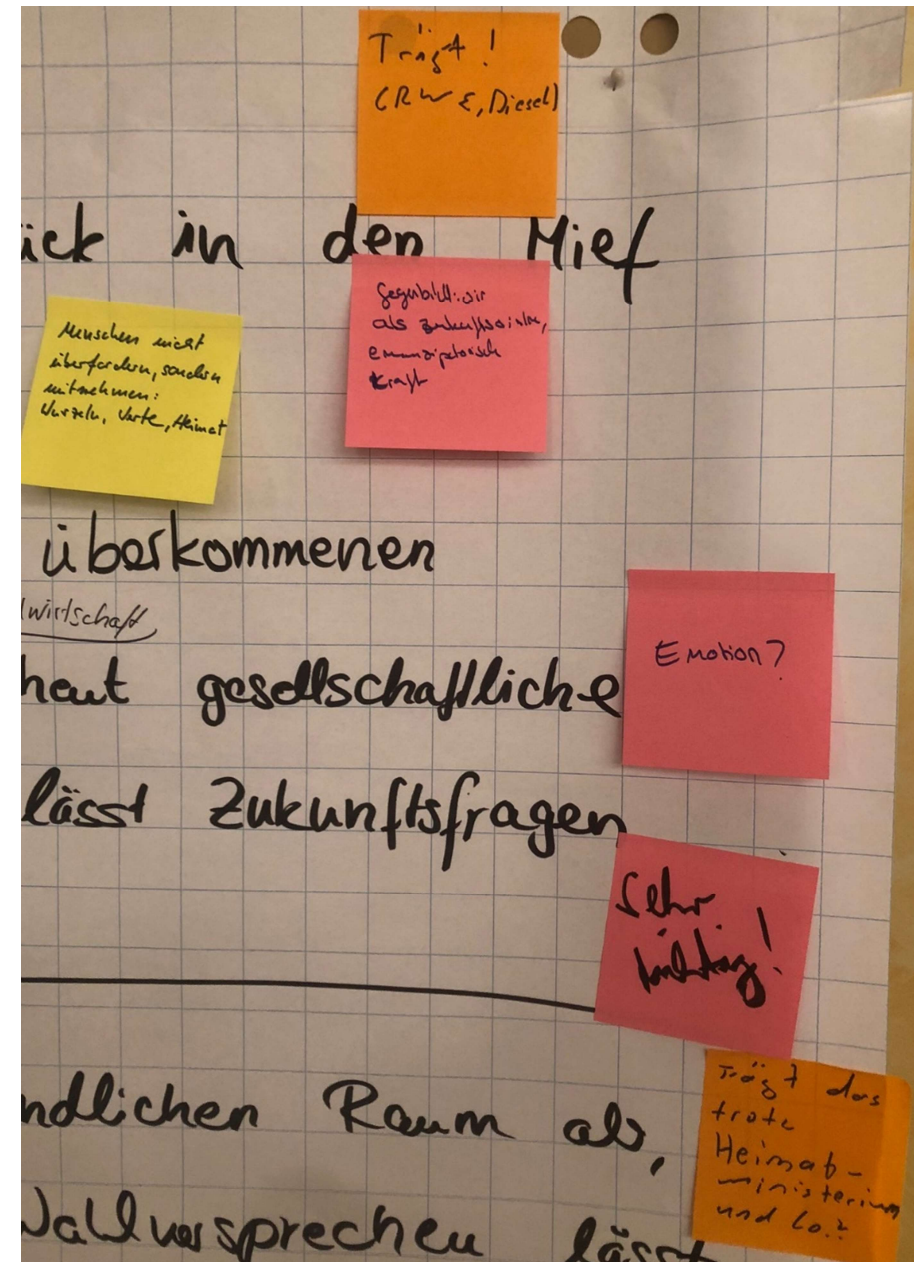 Trägt!
(RWE, Diesel)
ick in den Mief
Menschen nicht
überfordern, sondern
mitnehmen:
Wurzeln, Worte, Heimat
Gegenbild: wir
als
emanzipatorisch
Kraft
überkommenen
wirtschaft
heut gesellschaftliche
Emotion?
lässt Zukunftsfragen
Sehr
wichtig!
ndlichen Raum ab,
Trägt das
trotz
Heimat-
ministerium
und Co.?
Wahlversprechen lässt